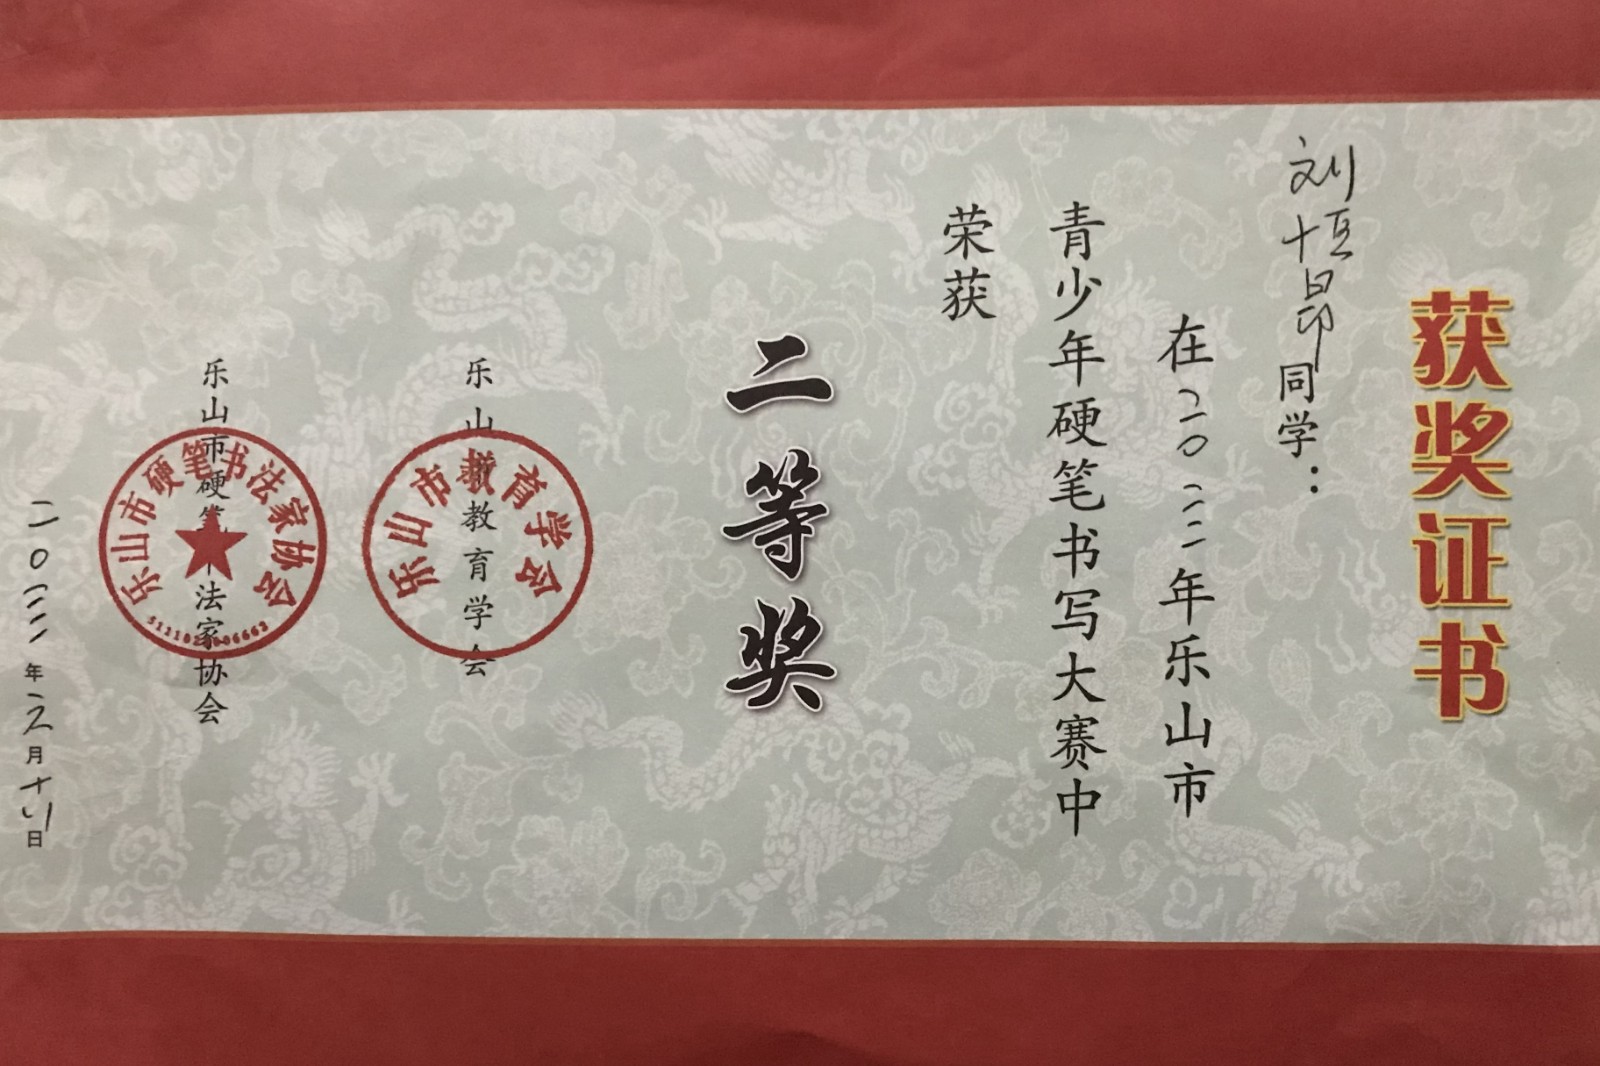 获奖证书
刘恒昂同学：
在二0二二年乐山市
青少年硬笔书写大赛中
荣获
二等奖
乐山市教育学会
乐山市教育学会
乐山市硬笔书法家协会
乐山市硬笔书法家协会
二0二二年六月十八日